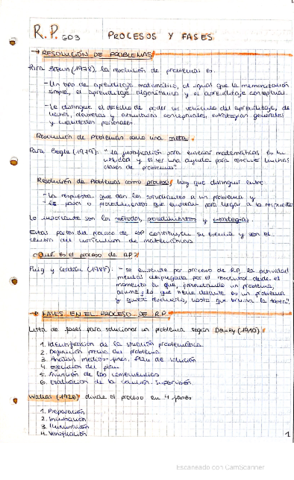 R.P. SO3 PROCESOS Y FASES
→ RESOLUCIÓN DE PROBLEMAS
Para (1978), la resolución de problemas es:
- Un tipo de aprendizaje matemático, al igual que la memorización
simple, el aprendizaje algorítmico y el aprendizaje conceptual.
- Le distingue el de ser un vehículo del aprendizaje, de
, destrezas y estructuras conceptuales, estrategias generales
y cuestiones
Resolución de problemas como una meta:
Para Begle (1979): - "la justificación para enseñar matemáticas es su
utilidad y si es una ayuda para resolver muchas
clases de problemas"
Resolución de problemas como proceso: hay que distinguir entre
- La respuesta que dan los estudiantes a un problema y
- los pasos o procedimientos que para llegar a la respuesta
Lo importante son los métodos, procedimientos y estrategias
Estas partes del proceso de son
del currículum de matemáticas
¿Qué es el proceso de RP?
Puig y Cerdán (1988): - "se entiende por proceso de R.P. la actividad
mental desplegada por el resolutor desde el
momento en que, un problema,
que tiene delante es un problema
y quiere resolverlo, hasta que termina la tarea".
→ FASES EN EL PROCESO DE R.P.
Lista de fases para solucionar un problema según Dewey (1910):
1. Identificación de la situación problemática
2. Definición precisa del problema
3. Análisis medios-fines. Plan de solución
4. Ejecución del plan
5. Asunción de las consecuencias
6. Evaluación de la solución. Supervisión.
Wallas (1926) divide el proceso en 4 fases
1. Preparación
2. Incubación
3. Iluminación
4. Verificación
1
Escaneado con CamScanner